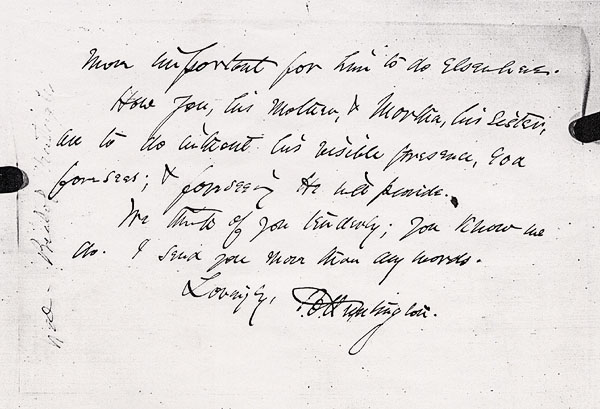 more important for him to do elsewhere.
How you, his mother, & Martha, his sister,
are to do without his visible presence, God
foresees; & foreseeing He will provide.
We think of you tenderly; you know we
do. I send you more than any words.
Lovingly, Huntington.